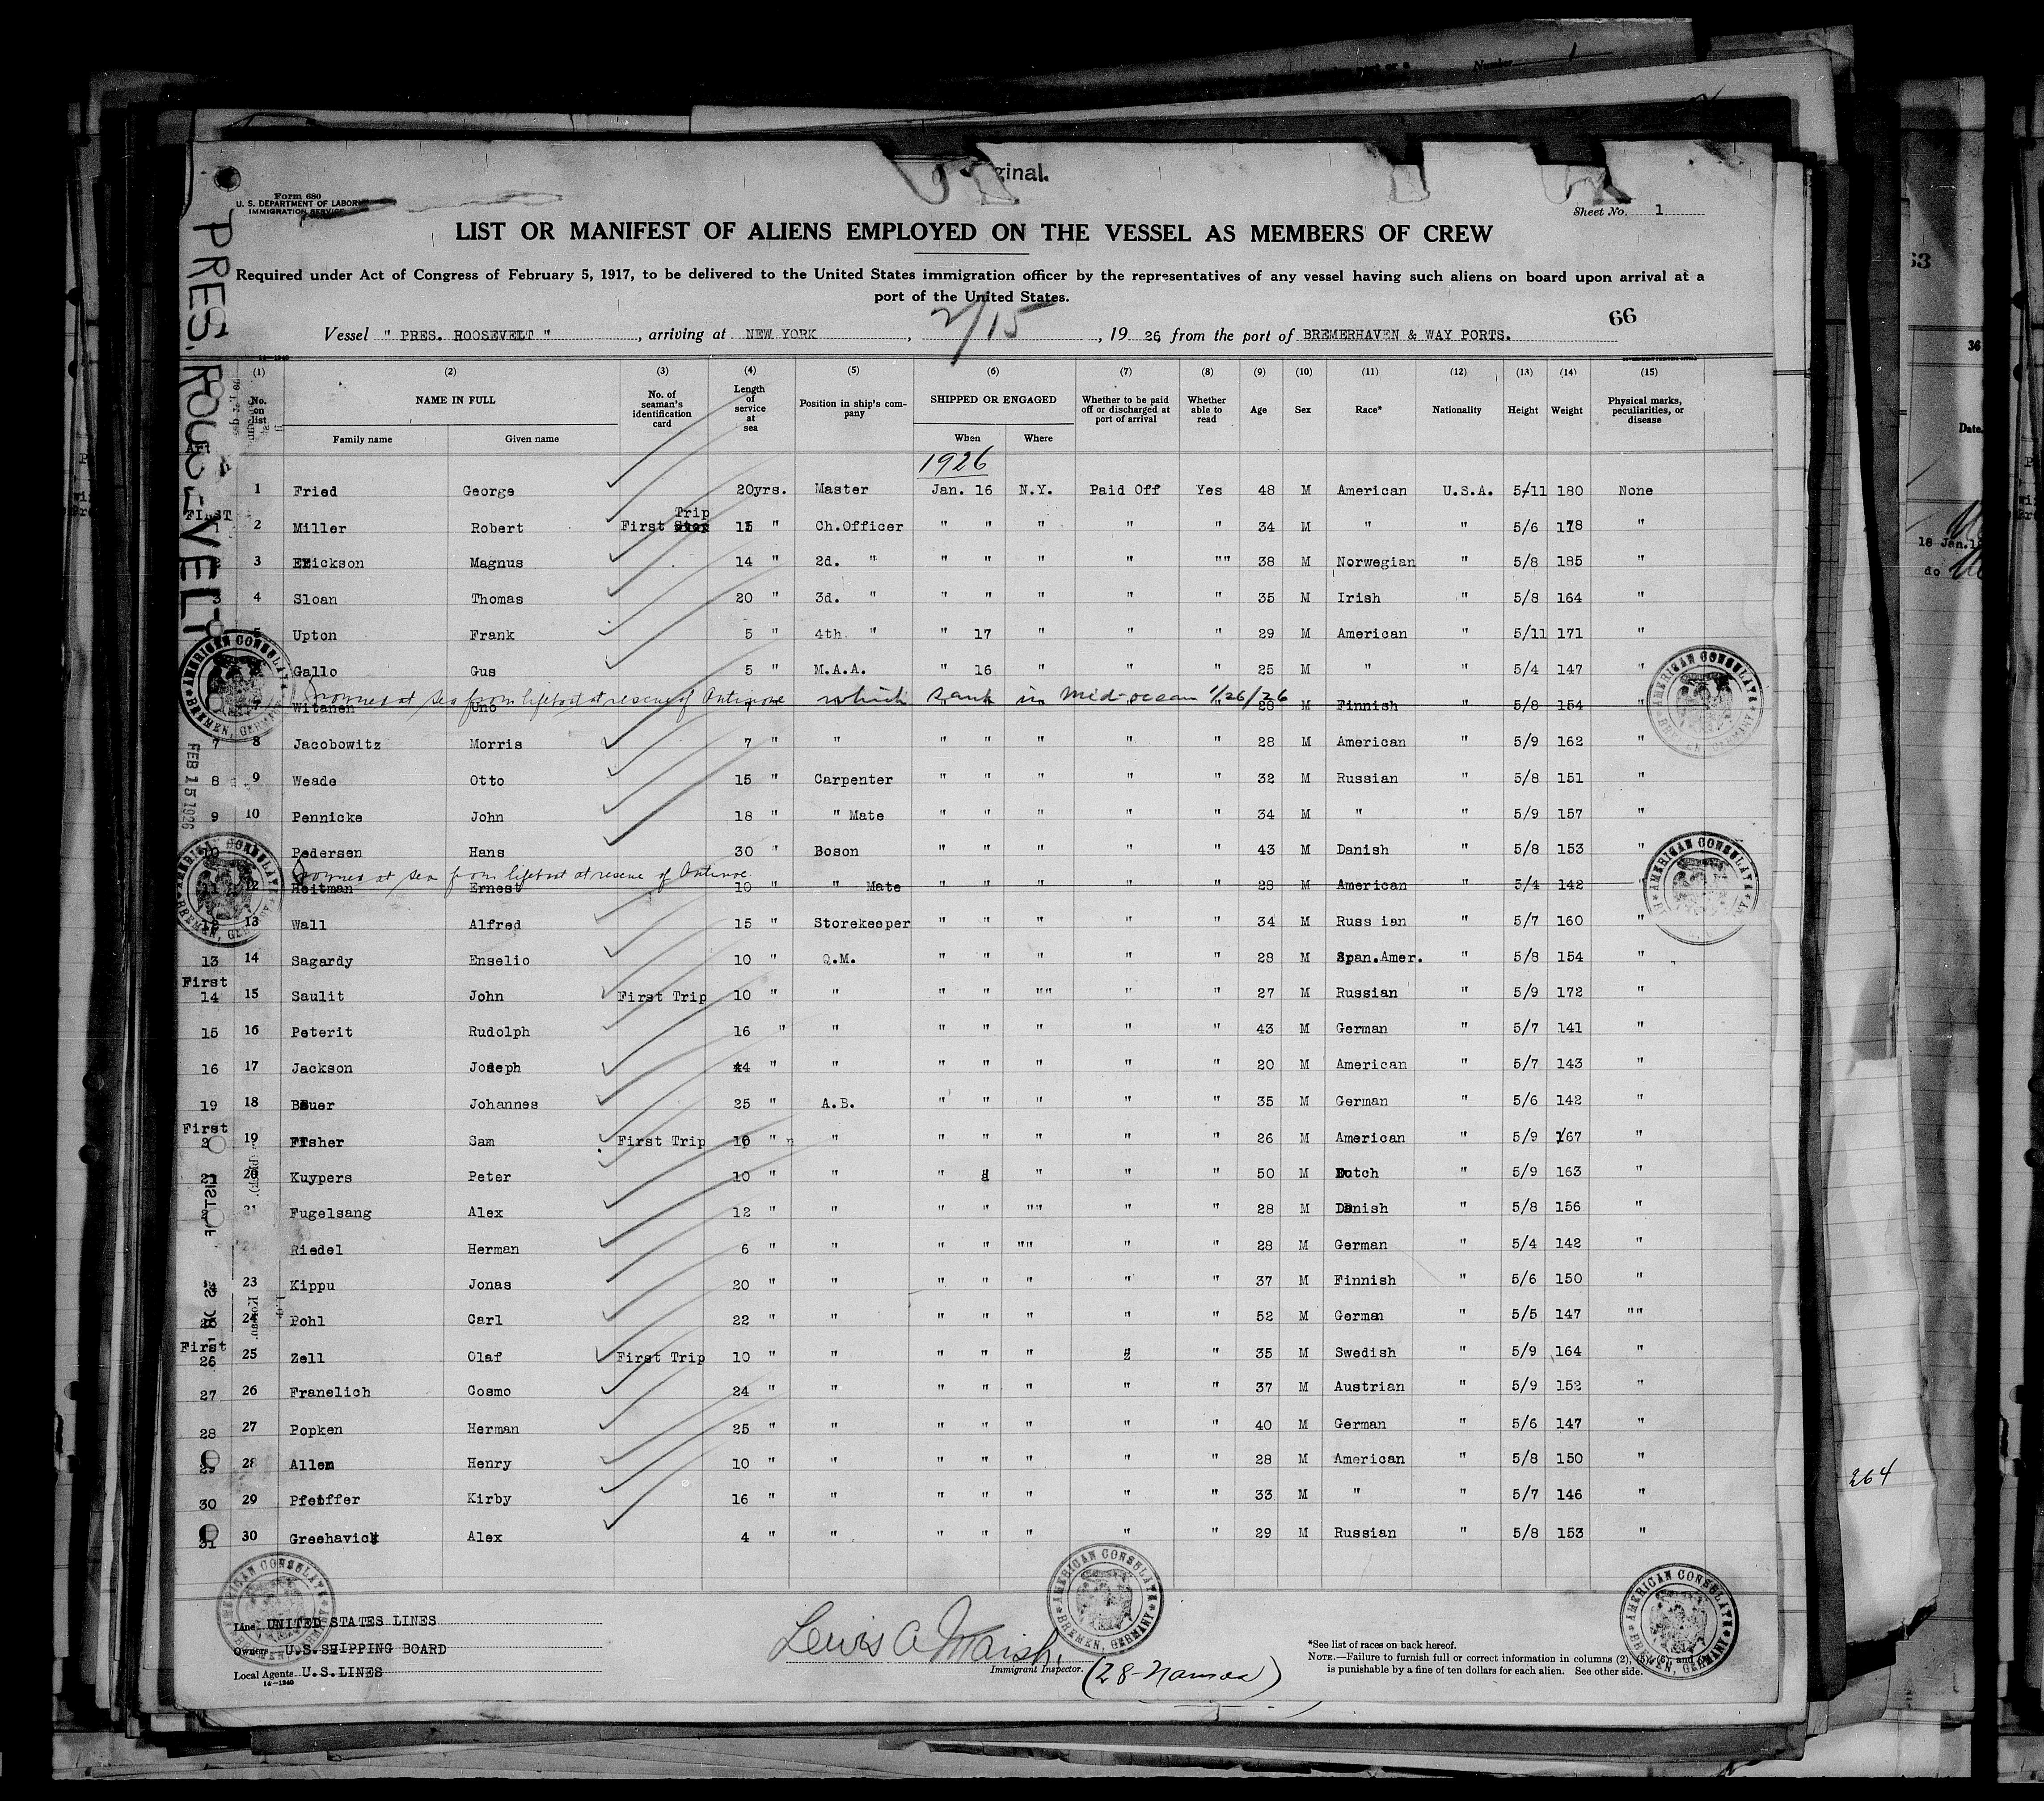 Number 1
ginal.
Form 680
U. S. DEPARTMENT OF LABOR
IMMIGRATION SERVICE
Sheet No. 1
LIST OR MANIFEST OF ALIENS EMPLOYED ON THE VESSEL AS MEMBERS OF CREW
Required under Act of Congress of February 5, 1917, to be delivered to the United States immigration officer by the representatives of any vessel having such aliens on board upon arrival at a
port of the United States.
66
Vessel " PRES. ROOSEVELT ", arriving at NEW YORK, 2/15, 1926 from the port of BREMERHAVEN & WAY PORTS.
PRES. ROOSEVELT
(1) (2) (3) (4) (5) (6) (7) (8) (9) (10) (11) (12) (13) (14) (15)
No. on list NAME IN FULL No. of seaman's identification card Length of service at sea Position in ship's company SHIPPED OR ENGAGED Whether to be paid off or discharged at port of arrival Whether able to read Age Sex Race* Nationality Height Weight Physical marks, peculiarities, or disease
Family name Given name When Where
1926
1 Fried George 20yrs. Master Jan. 16 N.Y. Paid Off Yes 48 M American U.S.A. 5/11 180 None
FIRST 1 2 Miller Robert First Trip 15 " Ch.Officer " " " " " 34 M " " 5/6 178 "
2 3 Erickson Magnus 14 " 2d. " " " " " "" 38 M Norwegian " 5/8 185 "
3 4 Sloan Thomas 20 " 3d. " " " " " " 35 M Irish " 5/8 164 "
5 Upton Frank 5 " 4th " " 17 " " " 29 M American " 5/11 171 "
Gallo Gus 5 " M.A.A. " 16 " " " 25 M " " 5/4 147 "
Drowned at sea from lifeboat at rescue of Antinoe which sank in Mid-ocean 1/26/26
Witanen Uno 7 " " " " " " " 28 M Finnish " 5/8 154 "
7 8 Jacobowitz Morris 7 " " " " " " " 28 M American " 5/9 162 "
8 9 Weade Otto 15 " Carpenter " " " " " 32 M Russian " 5/8 151 "
9 10 Pennicke John 18 " " Mate " " " " " 34 M " " 5/9 157 "
10 Pedersen Hans 30 " Boson " " " " " 43 M Danish " 5/8 153 "
Drowned at sea from lifeboat at rescue of Antinoe.
11 12 Heitman Ernest 10 " " Mate " " " " " 28 M American " 5/4 142 "
12 13 Wall Alfred 15 " Storekeeper " " " " " 34 M Russ ian " 5/7 160 "
13 14 Sagardy Enselio 10 " Q.M. " " " " " 28 M Span.Amer. " 5/8 154 "
First 14 15 Saulit John First Trip 10 " " " " "" " " 27 M Russian " 5/9 172 "
15 16 Peterit Rudolph 16 " " " " " " " 43 M German " 5/7 141 "
16 17 Jackson Joseph 4 " " " " " " " 20 M American " 5/7 143 "
19 18 Bauer Johannes 25 " A.B. " " " " " 35 M German " 5/6 142 "
First 20 19 Fisher Sam First Trip 10 " " " " " " " 26 M American " 5/9 167 "
21 20 Kuypers Peter 10 " " " " " " " 50 M Dutch " 5/9 163 "
21 Fugelsang Alex 12 " " " " "" " " 28 M Danish " 5/8 156 "
Riedel Herman 6 " " " " "" " " 28 M German " 5/4 142 "
23 Kippu Jonas 20 " " " " " " " 37 M Finnish " 5/6 150 "
24 Pohl Carl 22 " " " " " " " 52 M German " 5/5 147 ""
First 26 25 Zell Olaf First Trip 10 " " " " " " " 35 M Swedish " 5/9 164 "
27 26 Franelich Cosmo 24 " " " " " " " 37 M Austrian " 5/9 152 "
28 27 Popken Herman 25 " " " " " " " 40 M German " 5/6 147 "
29 28 Allen Henry 10 " " " " " " " 28 M American " 5/8 150 "
30 29 Pfeiffer Kirby 16 " " " " " " " 33 M " " 5/7 146 "
31 30 Greehavick Alex 4 " " " " " " " 29 M Russian " 5/8 153 "
FEB 15 1926
AMERICAN CONSULATE BREMEN, GERMANY
Line UNITED STATES LINES
Owner U.S.SHIPPING BOARD
Local Agents U.S.LINES
14—1240
Lewis A Marsh,
Immigrant Inspector.
(28 Names)
*See list of races on back hereof.
NOTE.—Failure to furnish full or correct information in columns (2), (5), (6), and
is punishable by a fine of ten dollars for each alien. See other side.
63
36
Date.
18 Jan.1
do
264